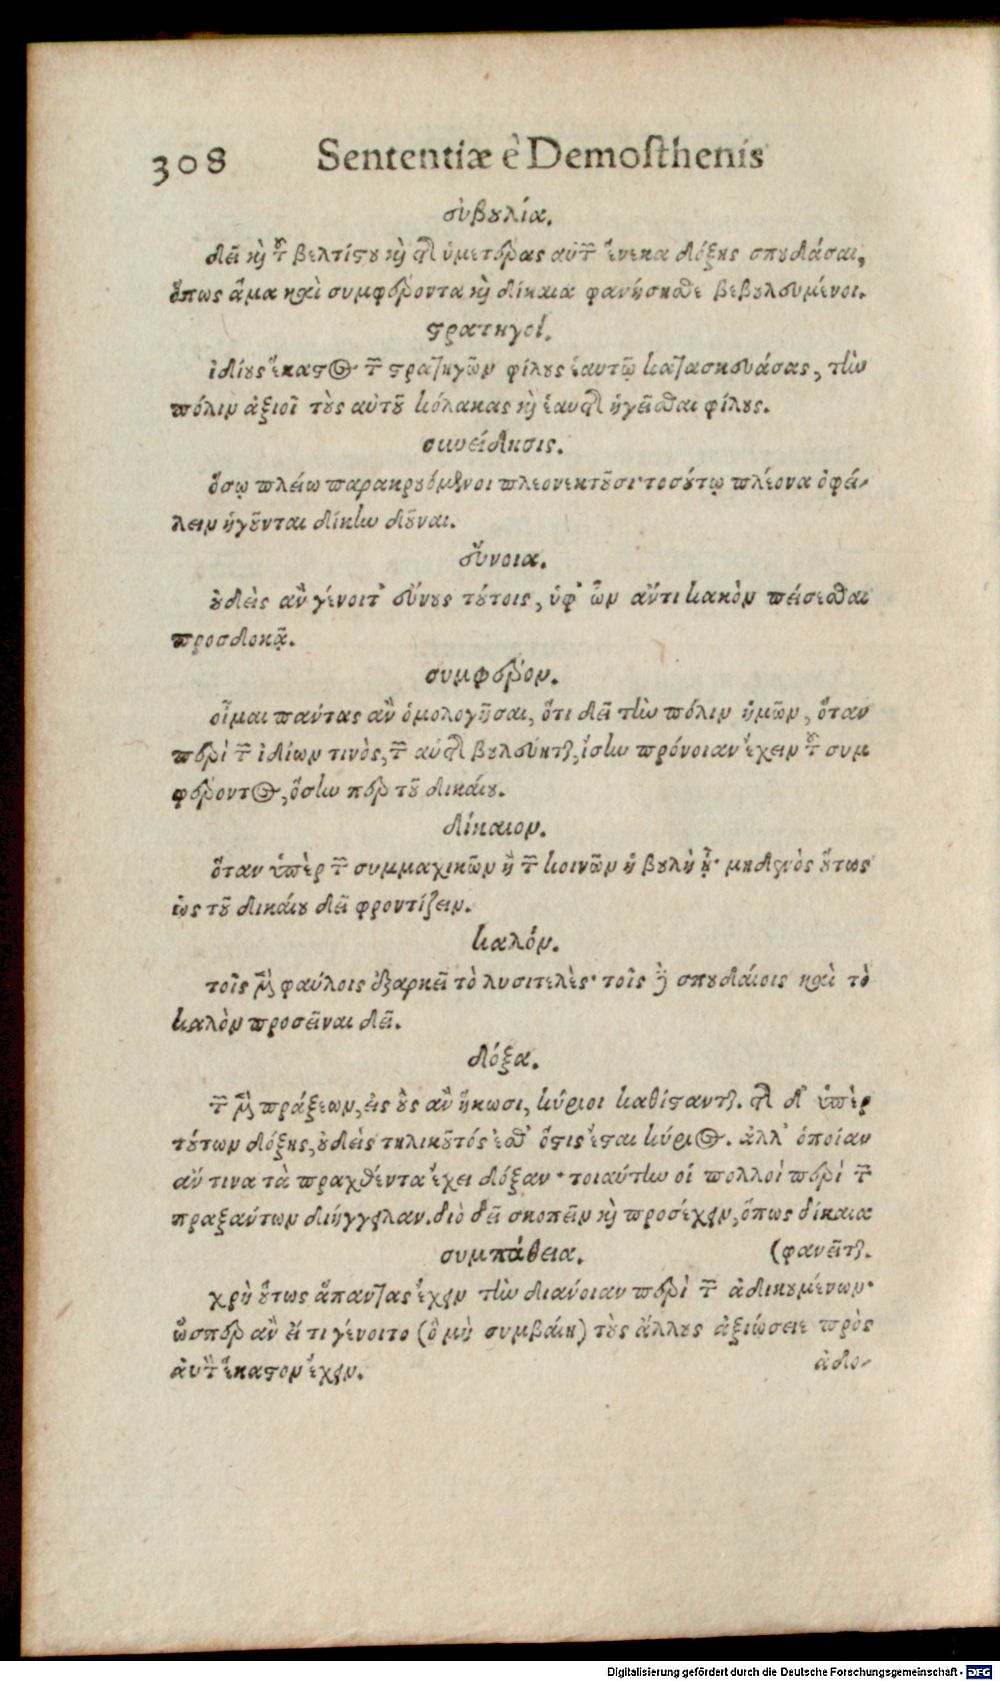 308 Sententiæ è Demosthenis
συβουλία.
δεῖ καὶ τοῦ βελτίστου καὶ τῆς ὑμετέρας αὐτῶν ἕνεκα δόξης σπουδάσαι,
ὅπως ἅμα καὶ συμφέροντα καὶ δίκαια φανήσησθε βεβουλευμένοι.
στρατηγοί.
ἰδίους ἕκαστος τῶν στρατηγῶν φίλους ἑαυτῷ κατασκευάσας, τὴν
πόλιν ἀξιοῖ τοὺς αὐτοῦ κόλακας καὶ ἑαυτῆς ἡγεῖσθαι φίλους.
συνείδησις.
ὅσῳ πλείω παρακρουόμενοι πλεονεκτοῦσι· τοσούτῳ πλέονα ὀφεί-
λειν ἡγοῦνται δίκην δοῦναι.
εὔνοια.
οὐδεὶς ἂν γένοιτ' εὔνους τούτοις, ὑφ' ὧν ἄν τι κακὸν πείσεσθαι
προσδοκᾷ.
συμφέρον.
οἶμαι πάντας ἂν ὁμολογῆσαι, ὅτι δεῖ τὴν πόλιν ἡμῶν, ὅταν
περὶ τῶν ἰδίων τινὸς, τῶν αὑτῆς βουλεύηται, ἴσην πρόνοιαν ἔχειν τοῦ συμ
φέροντος, ὅσην περ τοῦ δικαίου.
δίκαιον.
ὅταν ὑπὲρ τῶν συμμαχικῶν ἢ τῶν κοινῶν ἡ βουλὴ ᾖ· μηδενὸς οὕτως
ὡς τοῦ δικαίου δεῖ φροντίζειν.
καλόν.
τοῖς μὲν φαύλοις ἐξαρκεῖ τὸ λυσιτελὲς· τοῖς δὲ σπουδαίοις καὶ τὸ
καλὸν προσεῖναι δεῖ.
δόξα.
τῶν μὲν πράξεων, εἰς οὓς ἂν ἥκωσι, κύριοι καθίστανται. τῆς δ' ὑπὲρ
τούτων δόξης, οὐδεὶς τηλικοῦτός ἐσθ' ὅστις ἔσται κύριος. ἀλλ' ὁποίαν
ἄν τινα τὰ πραχθέντα ἔχει δόξαν· τοιαύτην οἱ πολλοὶ περὶ τῶν
πραξάντων διήγγειλαν. διὸ δεῖ σκοπεῖν καὶ προσέχειν, ὅπως δίκαια
συμπάθεια. (φανεῖται.
χρὴ οὕτως ἅπαντας ἔχειν τὴν διάνοιαν περὶ τῶν ἀδικουμένων·
ὥσπερ ἂν εἴ τι γένοιτο (ὃ μὴ συμβαίη) τοὺς ἄλλους ἀξιώσειε πρὸς
αὑτὸν ἕκαστον ἔχειν. ἀδιο-
Digitalisierung gefördert durch die Deutsche Forschungsgemeinschaft - DFG